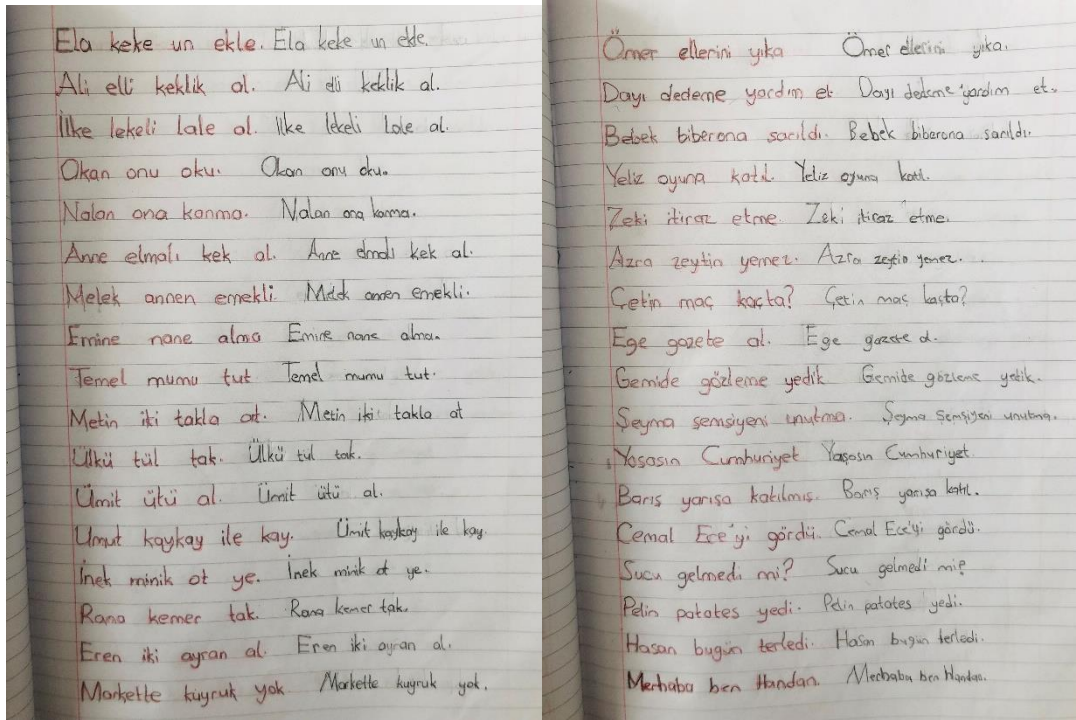 Ela keke un ekle. Ela keke un ekle.
Ali elli keklik al. Ali elli keklik al.
İlke lekeli lale al. İlke lekeli lale al.
Okan onu oku. Okan onu oku.
Nalan ona kanma. Nalan ona kanma.
Anne elmalı kek al. Anne elmalı kek al.
Melek annen emekli Melek annen emekli.
Emine nane alma Emine nane alma.
Temel mumu tut Temel mumu tut.
Metin iki takla at. Metin iki takla at
Ülkü tül tak. Ülkü tül tak.
Ümit ütü al. Ümit ütü al.
Umut kaykay ile kay. Ümit kaykay ile kay.
İnek minik ot ye. İnek minik ot ye.
Rana kemer tak. Rana kemer tak.
Eren iki ayran al. Eren iki ayran al.
Markette kuyruk yok Markette kuyruk yok.
Ömer ellerini yıka Ömer ellerini yıka.
Dayı dedeme yardım et Dayı dedeme yardım et.
Bebek biberona sarıldı. Bebek biberona sarıldı.
Yeliz oyuna katıl. Yeliz oyuna katıl.
Zeki itiraz etme. Zeki itiraz etme.
Azra zeytin yemez. Azra zeytin yemez.
Çetin maç kaçta? Çetin maç kaçta?
Ege gazete al. Ege gazete al.
Gemide gözleme yedik Gemide gözleme yedik.
Şeyma şemsiyeni unutma. Şeyma şemsiyeni unutma.
Yaşasın Cumhuriyet Yaşasın Cumhuriyet.
Barış yarışa katılmış. Barış yarışa katıl.
Cemal Ece'yi gördü. Cemal Ece'yi gördü.
Sucu gelmedi mi? Sucu gelmedi mi?
Pelin patates yedi. Pelin patates yedi.
Hasan bugün terledi. Hasan bugün terledi.
Merhaba ben Handan. Merhaba ben Handan.